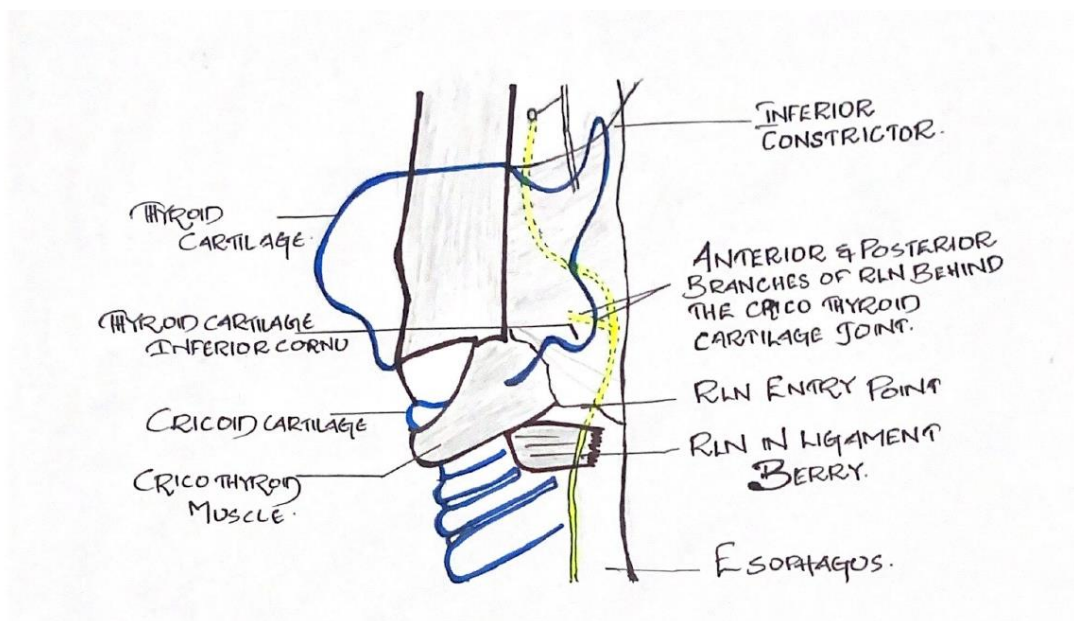 THYROID
CARTILAGE.
THYROID CARTILAGE
INFERIOR CORNU
CRICOID CARTILAGE
CRICOTHYROID
MUSCLE.
INFERIOR
CONSTRICTOR.
ANTERIOR & POSTERIOR
BRANCHES OF RLN BEHIND
THE CRICO THYROID
CARTILAGE JOINT.
RLN ENTRY POINT
RLN IN LIGAMENT
BERRY.
ESOPHAGUS.